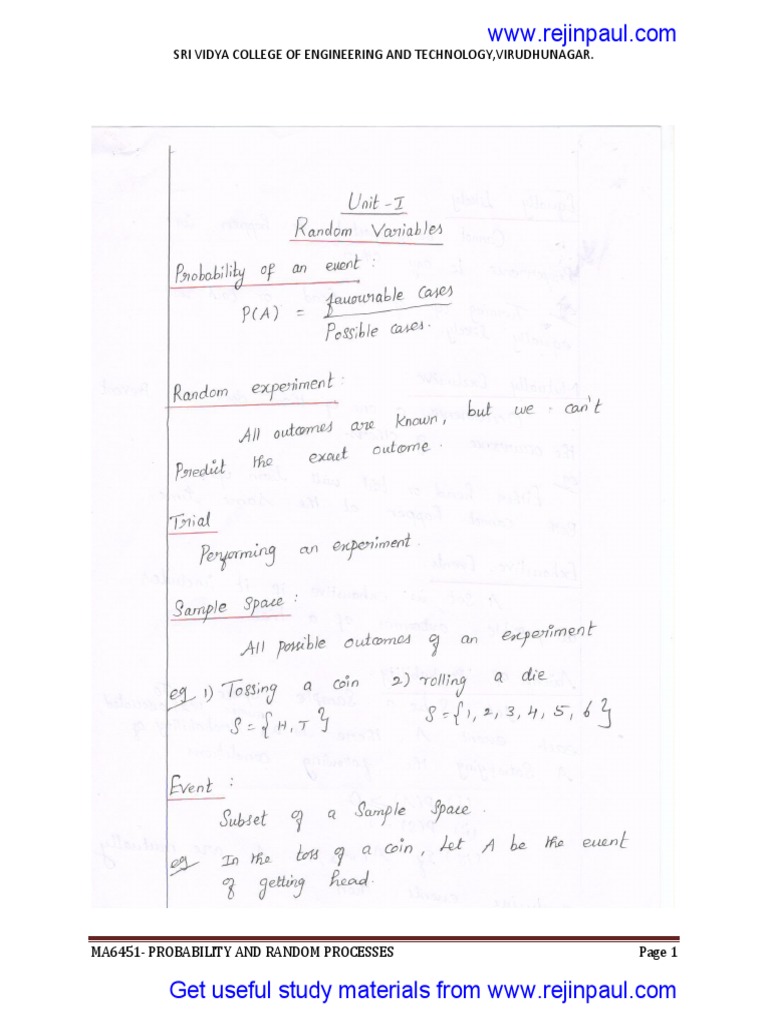 www.rejinpaul.com
SRI VIDYA COLLEGE OF ENGINEERING AND TECHNOLOGY,VIRUDHUNAGAR.
Unit - I
Random Variables
Probability of an event :
P(A) = favourable cases
Possible cases.
Random experiment :
All outcomes are known, but we can't
Predict the exact outcome.
Trial
Performing an experiment.
Sample Space :
All possible outcomes of an experiment
eg 1) Tossing a coin 2) rolling a die
S = {H, T} S = {1, 2, 3, 4, 5, 6}
Event :
Subset of a Sample Space.
eg In the toss of a coin, Let A be the event
of getting head.
MA6451- PROBABILITY AND RANDOM PROCESSES Page 1
Get useful study materials from www.rejinpaul.com